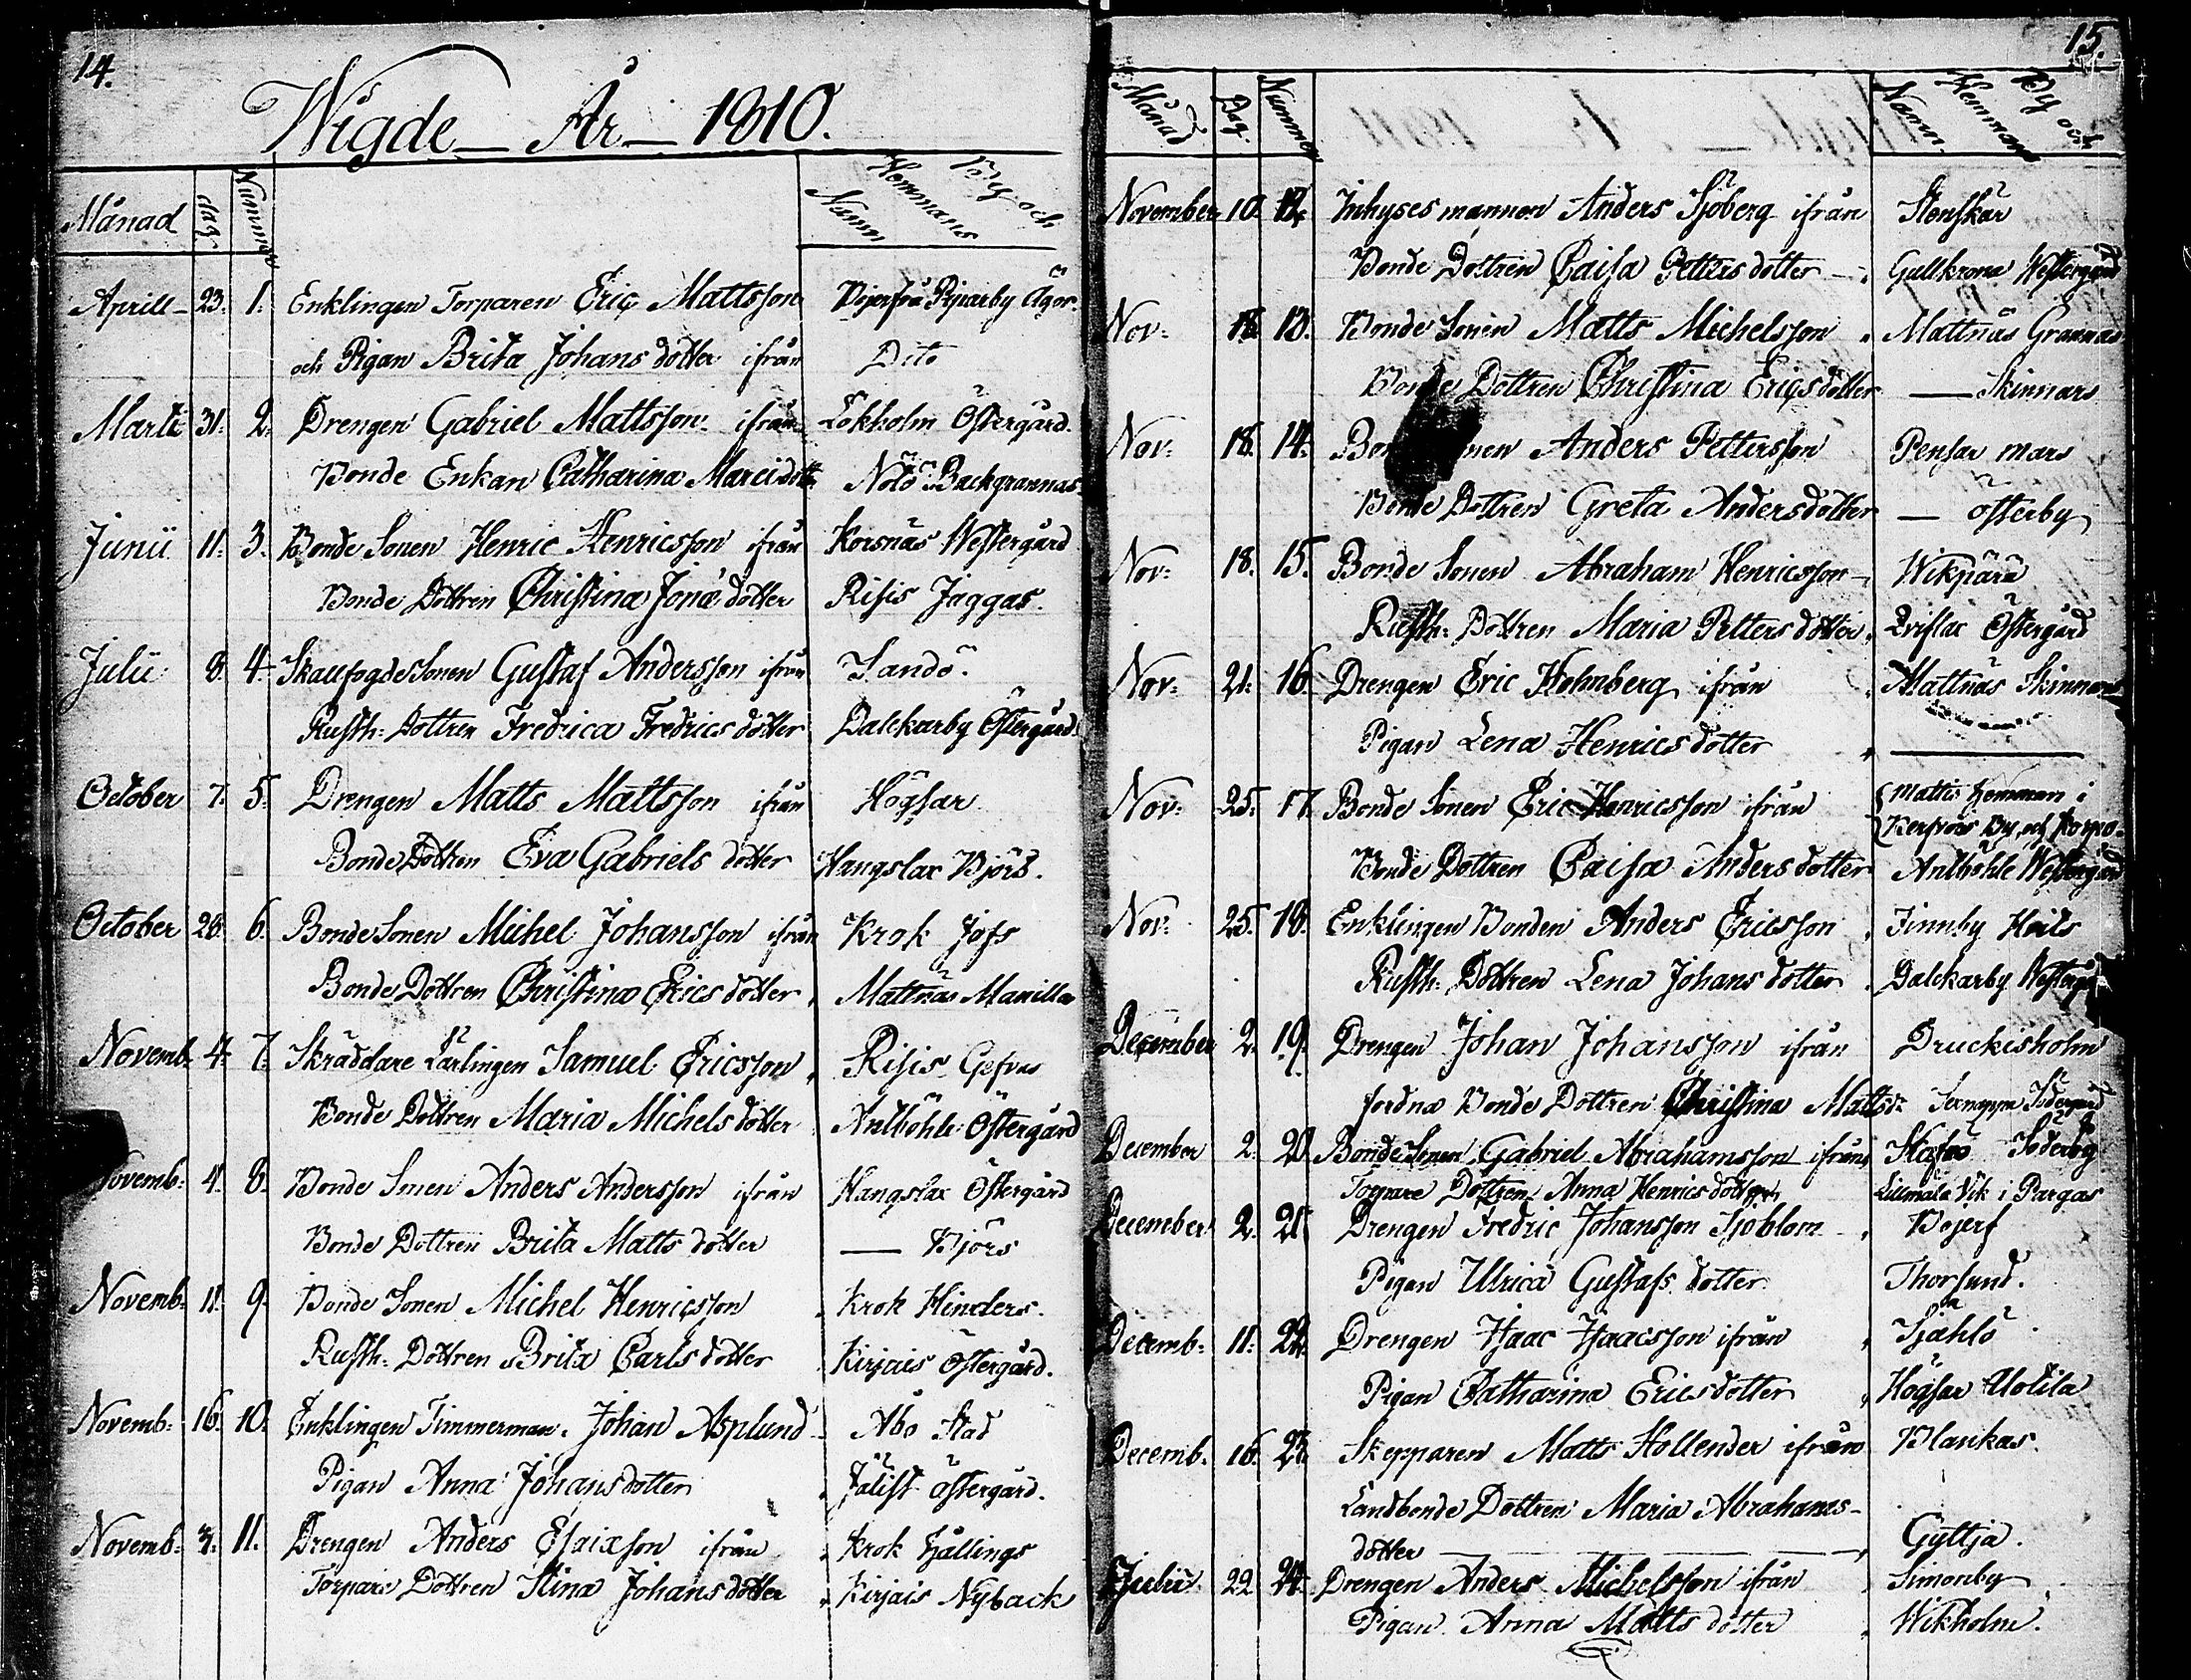 14.
Wigde År 1810.
Månad dag Nummer By och Hemmans Namn
Aprill 23. 1. Enklingen Torparen Eric Mattsson Ägor.
och Pigan Brita Johans dotter ifrån Dito
Marti 31. 2. Drengen Gabriel Mattsson ifrån Lökholm Östergård.
Bonde Enkan Catharina Marcidott. Nötö Backgrannas
Junii 11. 3. Bonde Sonen Henric Henricsson ifrån Korsnäs Westergård
Bonde Dottren Christina Jonæ dotter Risis Jäggas.
Julii 8. 4. Skaufogde Sonen Gustaf Andersson ifrån Sandö.
Rusth: Dottren Fredrica Fredrics dotter Dalckarby Östergård
October 7. 5. Drengen Matts Mattsson ifrån Högsar
Bonde Dottren Eva Gabriels dotter Hangslax Björs.
October 28. 6. Bonde Sonen Michel Johansson ifrån Krok Jofs
Bonde Dottren Christina Erics dotter Mattnäs Manilla
Novemb. 4. 7. Skräddare Lärlingen Samuel Ericsson Risis Gefvas
Bonde Dottren Maria Michels dotter Antböhle Östergård
Novemb: 4. 8. Bonde Sonen Anders Andersson ifrån Hangslax Östergård
Bonde Dottren Brita Matts dotter — Björs
Novemb: 11. 9. Bonde Sonen Michel Henricsson Krok Hinders.
Rusth: Dottren Brita Carls dotter Kirjais Östergård.
Novemb: 16. 10. Enklingen Timmerman. Johan Asplund Åbo Stad
Pigan Anna Johans dotter Jälist Östergård.
Novemb: 11. Drengen Anders Esaiæson ifrån Krok Hjällings
Torpare Dottren Stina Johans dotter Kirjais Nyback
15.
Månad Dag. Nummer By och Hemmans Namn
November 10. 12. Inhyses mannen Anders Sjöberg ifrån Stenskär
Bonde Dottren Caisa Petters dotter Gullkrona Westergård
Nov: 18. 13. Bonde Sonen Matts Michelsson Mattnäs Grannas
Bonde Dottren Christina Ericsdotter — Skinnars
Nov: 18. 14. Anders Pettersson Pensar mars
Bonde Dottren Greta Andersdotter — österby
Nov: 18. 15. Bonde Sonen Abraham Henricsson Wikpärä
Rusth: Dottren Maria Petters dotter Prislax Östergård
Nov: 21. 16. Drengen Eric Holmberg ifrån Mattnäs Skinnars
Pigan Lena Henrics dotter —
Nov: 25. 17. Bonde Sonen Eric Henricsson ifrån Mattis hemman i
By och Korpo.
Bonde Dottren Caisa Anders dotter Antböhle Westergård
Nov: 25. 18. Enklingen Bonden Anders Ericsson Finnby Heils
Rusth: Dottren Lena Johans dotter Dalckarby
December 2. 19. Drengen Johan Johansson ifrån Druckisholm
fordna Bonde Dottren Christina Mattsd:
December 2. 20. Bonde Sonen Gabriel Abrahamsson ifrån Söderby
Torpare Dottren Anna Henrics dotter Lillmälö Vik i Pargas
December 2. 21. Drengen Fredric Johansson Sjöblom Bojerf
Pigan Ulrica Gustafs dotter Thorsund.
Decemb: 11. 22. Drengen Isaac Isaacsson ifrån Sjählö
Pigan Catharina Erics dotter Högsar Uotila
Decemb. 16. 23. Skepparen Matts Hollender ifrån Blankas.
Landbonde Dottren Maria Abrahams-
dotter — Gyttja.
Julii 22 24. Drengen Anders Michelsson ifrån Simonby
Pigan Anna Matts dotter Wikholm.